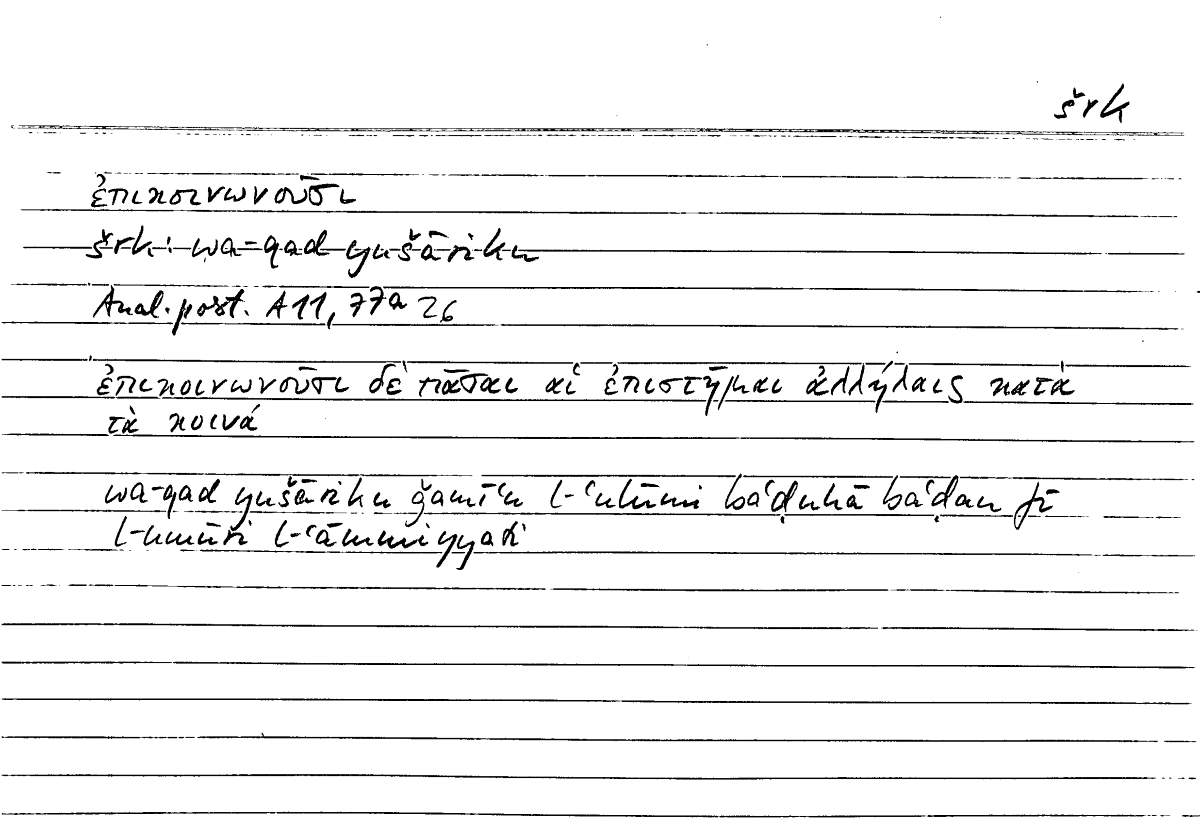 šrk
ἐπικοινωνοῦσι
šrk: wa-qad yušāriku
Anal. post. A11, 77a 26
ἐπικοινωνοῦσι δὲ πᾶσαι αἱ ἐπιστῆμαι ἀλλήλαις κατὰ
τὰ κοινά
wa-qad yušāriku ǧamīʿu l-ʿulūmi baʿḍuhā baʿḍan fī
l-umūri l-ʿāmmiyyati